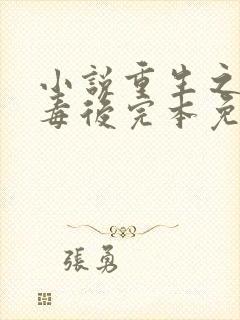 小説重生之
毒後完本免
張勇